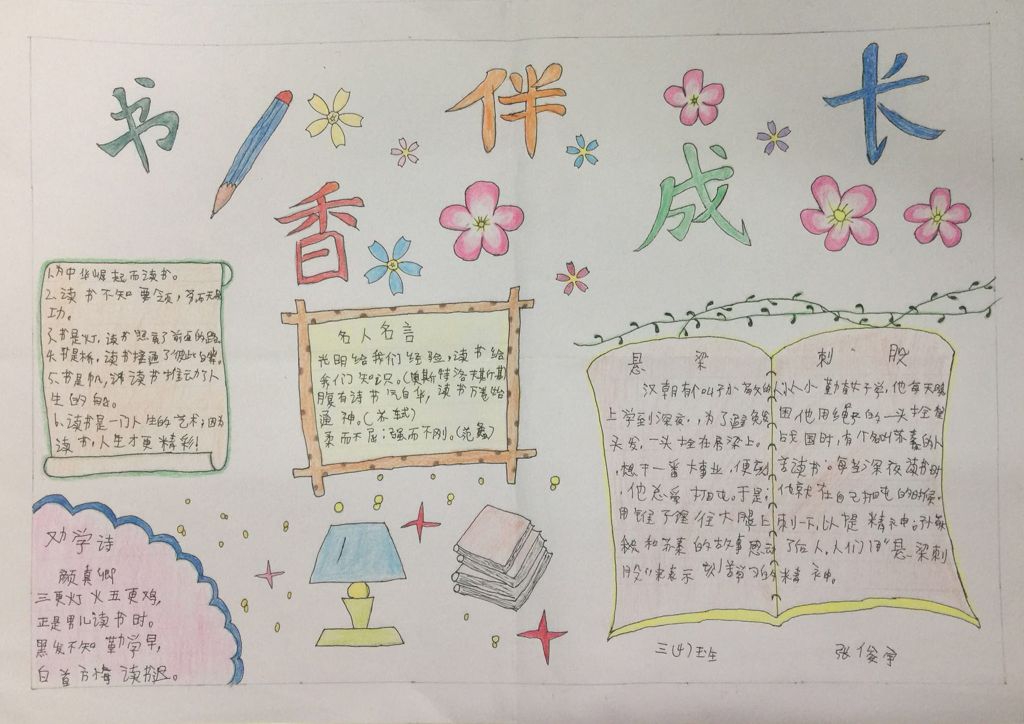 书香伴成长
1.为中华崛起而读书。
2.读书不知要领，劳而无
功。
3.书是灯，读书照亮了前面的路
4.书是桥，读书接通了彼此的岸。
5.书是帆，读书推动了人
生的船。
6.读书是一门人生的艺术；因为
读书，人生才更精彩！
名人名言
光明给我们经验，读书给
我们知识。（奥斯特洛夫斯基）
腹有诗书气自华，读书万卷始
通神。（苏轼）
柔而不屈；强而不刚。（范蠡）
劝学诗
颜真卿
三更灯火五更鸡，
正是男儿读书时。
黑发不知勤学早，
白首方悔读书迟。
悬梁刺股
汉朝有个叫孙敬的人从小勤奋好学，他每天晚
上学到深夜，为了避免发困他用绳子的一头拴住
头发，一头拴在房梁上。战国时，有个叫苏秦的人
想干一番大事业，便刻苦读书。每当深夜读书时
，他总爱打盹。于是；他就在自己打盹的时候，
用锥子往大腿上刺一下，以提精神；孙敬
和苏秦的故事感动了后人，人们用"悬梁刺
股"来表示刻苦学习的精神。
三（4）班
张俊宇